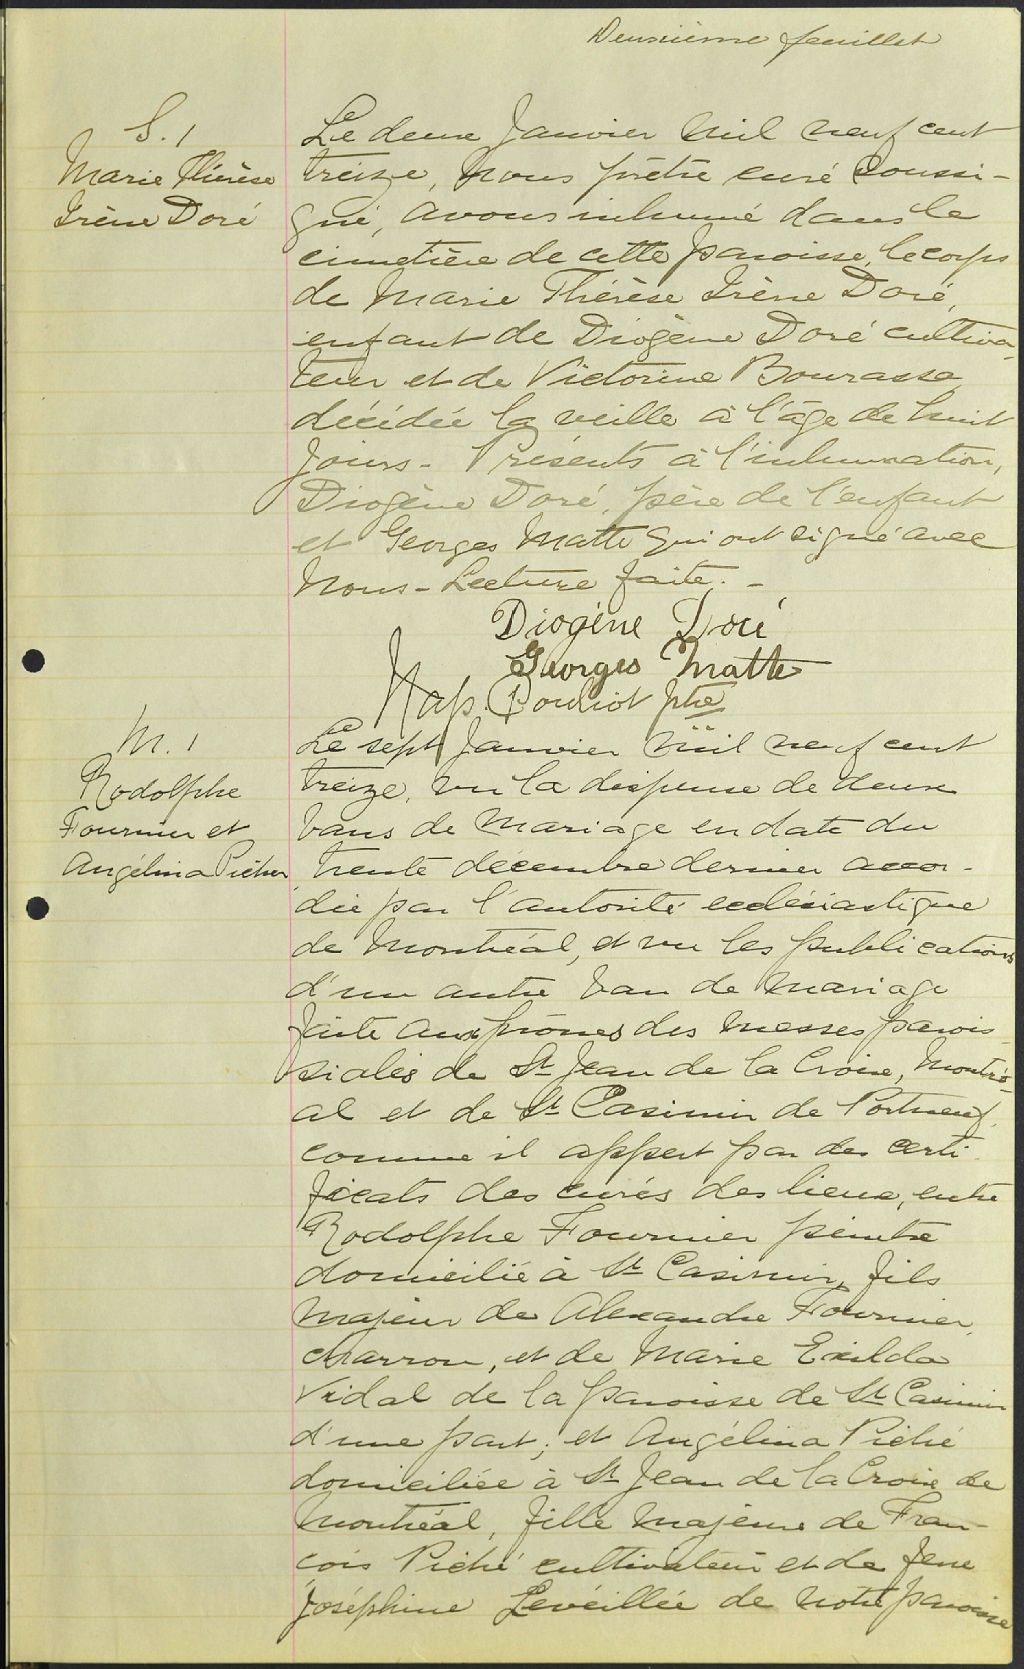 Deuxième feuillet
S. 1
Marie Thérèse
Irène Doré
Le deux Janvier mil neuf cent
treize, nous prêtre curé soussi-
gné, avons inhumé dans le
cimetière de cette paroisse, le corps
de Marie Thérèse Irène Doré,
enfant de Diogène Doré cultiva-
teur et de Victorine Bourassa,
décédée la veille à l'âge de huit
jours - Présents à l'inhumation,
Diogène Doré, père de l'enfant
et Georges Matte qui ont signé avec
nous - Lecture faite. -
Diogène Doré
Georges Matte
Nap. Pouliot ptre
M. 1
Rodolphe
Fournier et
Angélina Piché
Le sept Janvier mil neuf cent
treize, vu la dispense de deux
bans de mariage en date du
trente décembre dernier accor-
dée par l'autorité ecclésiastique
de Montréal, et vu les publications
d'un autre ban de mariage
faite aux prônes des messes parois-
siales de St Jean de la Croix, Montré-
al et de St Casimir de Portneuf,
comme il appert par des certi-
ficats des curés des lieux, entre
Rodolphe Fournier peintre
domicilié à St Casimir, fils
majeur de Alexandre Fournier,
charron, et de Marie Exilda
Vidal de la paroisse de St Casimir
d'une part; et Angélina Piché
domiciliée à St Jean de la Croix de
Montréal, fille majeure de Fran-
çois Piché cultivateur et de feue
Joséphine Léveillée de notre paroisse